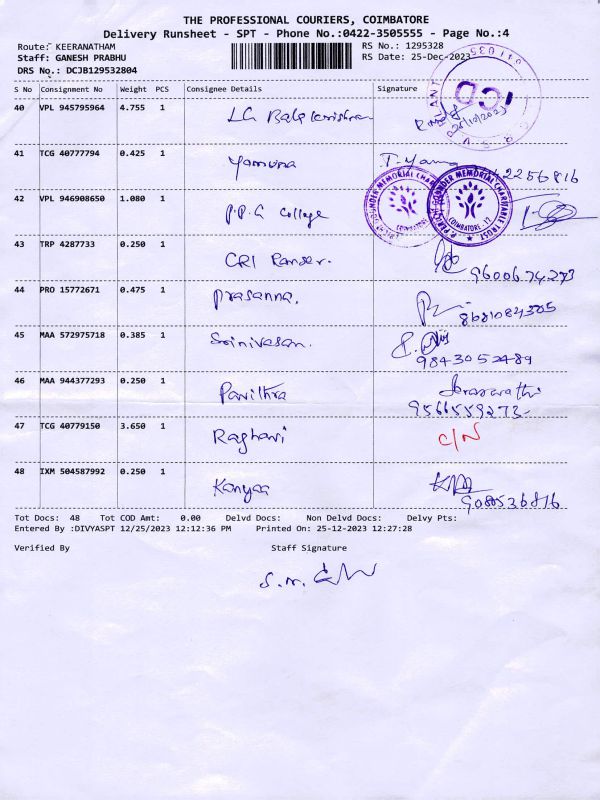 THE PROFESSIONAL COURIERS, COIMBATORE
Delivery Runsheet - SPT - Phone No.:0422-3505555 - Page No.:4
Route: KEERANATHAM
RS No.: 1295328
Staff: GANESH PRABHU
RS Date: 25-Dec-2023
DRS No.: DCJB129532804
S No Consignment No Weight PCS Consignee Details Signature
40 VPL 945795964 4.755 1
41 TCG 40777794 0.425 1 Yamuna
42 VPL 946908650 1.080 1 P.P.G College
COIMBATORE - 12
43 TRP 4287733 0.250 1 CRI
9600674273
44 PRO 15772671 0.475 1 Prasanna.
45 MAA 572975718 0.385 1 Srinivasan.
9843052489
46 MAA 944377293 0.250 1 Pavithra
9566559273
47 TCG 40779150 3.650 1 Raghavi C/N
48 IXM 504587992 0.250 1 Kanyaa
Tot Docs: 48 Tot COD Amt: 0.00 Delvd Docs: Non Delvd Docs: Delvy Pts:
Entered By :DIVYASPT 12/25/2023 12:12:36 PM Printed On: 25-12-2023 12:27:28
Verified By Staff Signature